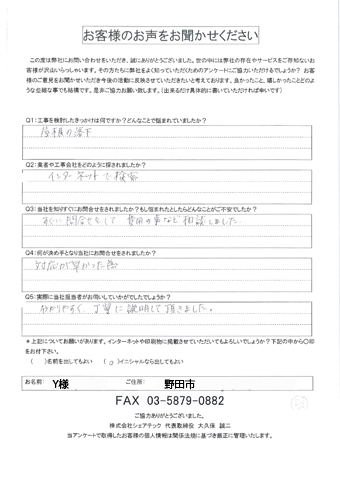 お客様のお声をお聞かせください
この度は弊社にお問い合わせをいただき、誠にありがとうございました。世の中には弊社の存在やサービスをご存知ないお
客様が沢山いらっしゃいます。その方たちに弊社をよく知っていただくためのアンケートにご協力いただけるでしょうか? お客
様のご意見をお聞かせいただき今後の活動に反映させていただきたいと考えております。良かったこと、嬉しかったことどのよ
うな些細な事でも結構です。是非ご協力お願い致します。(出来るだけ具体的に書いていただければ幸いです)
Q1:工事を検討したきっかけは何ですか?どんなことで悩まれていましたか?
屋根の落下
Q2:業者や工事会社をどのように探されましたか?
インターネットで検索
Q3:当社を知りすぐにお問合せをされましたか?もし悩まれたとしたらどんなことがご不安でしたか?
すぐに問合せをして 費用の事など相談しました
Q4:何が決め手となり当社にお問合せをされましたか?
対応が早かった為
Q5:実際に当社担当者がお伺いしていかがでしたでしょうか?
わかりやすく 丁寧に説明して頂きました。
*上記についてお願いがあります。インターネットや印刷物に掲載させていただいてもよろしいでしょうか?下記の中から○印
をお付け下さい。
( )名前を出してもよい (○)イニシャルなら出してもよい
お名前: Y様 ご住所: 野田市
FAX 03-5879-0882
ご協力ありがとうございました。
株式会社シェアテック 代表取締役 大久保 誠二
当アンケートで取得したお客様の個人情報は関係法規に基づき厳正に管理いたします。